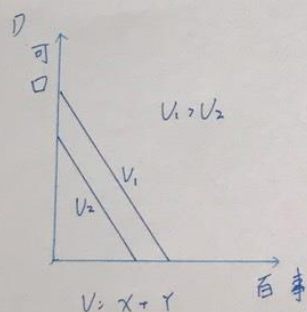 1)
可
口
U₁>U₂
U₁
U₂
百事
U=X+Y